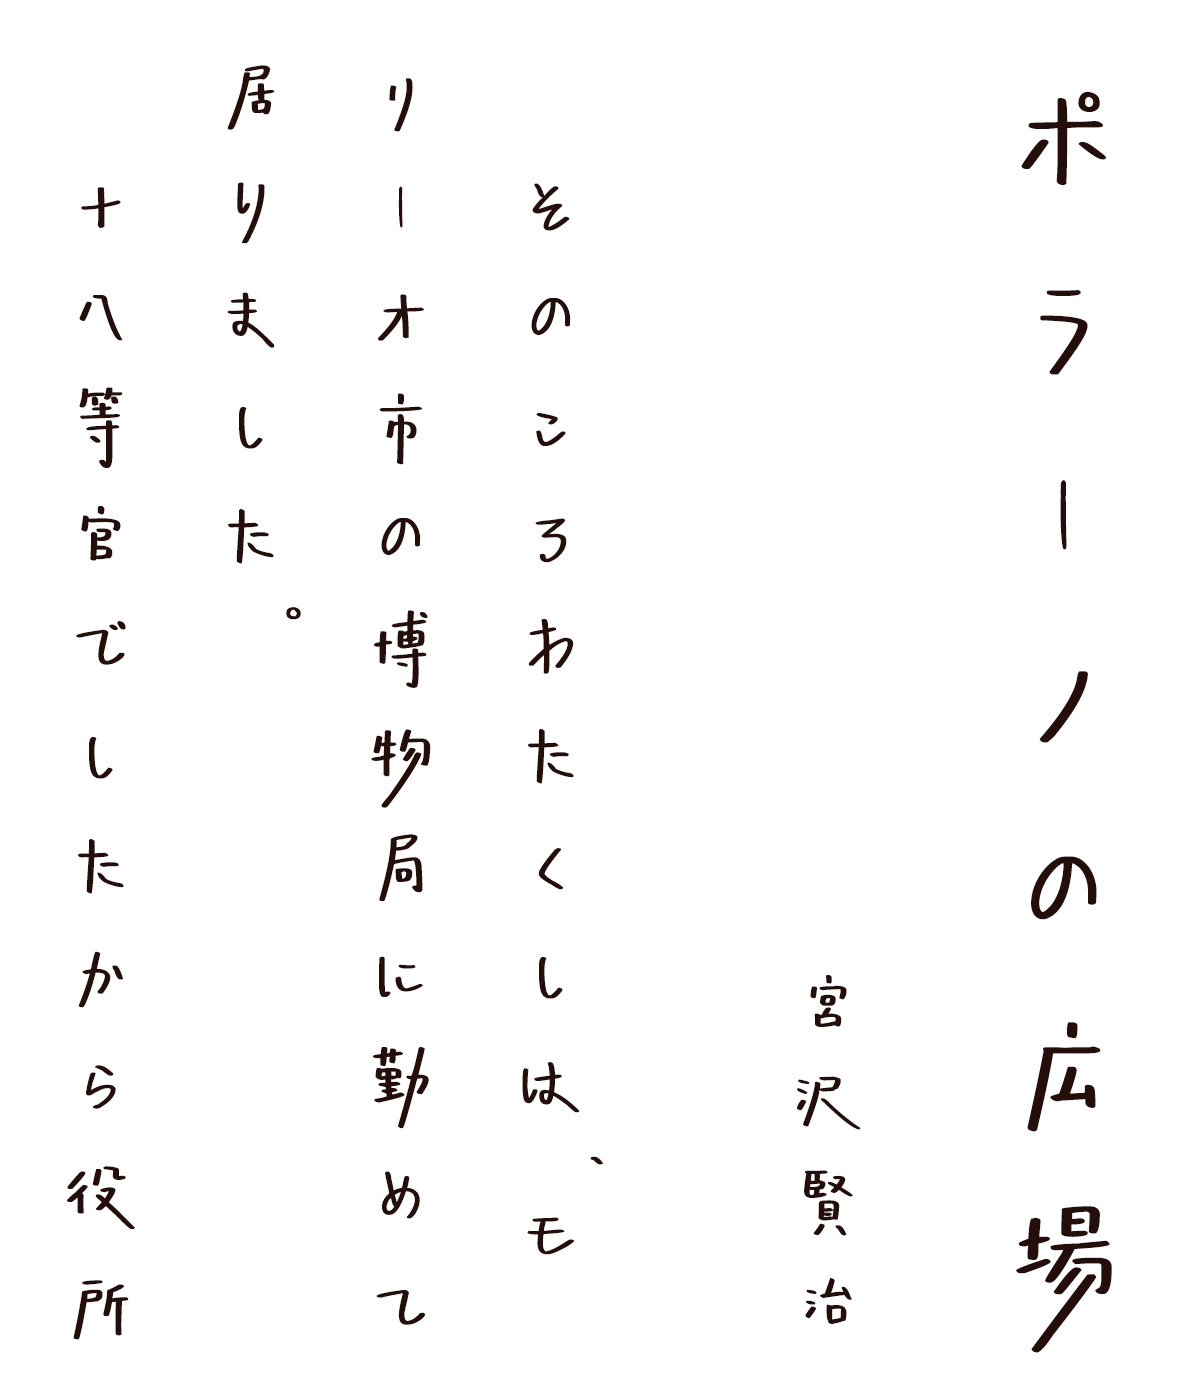 ポラーノの広場
宮沢賢治
そのころわたくしは、モ
リーオ市の博物局に勤めて
居りました。
十八等官でしたから役所